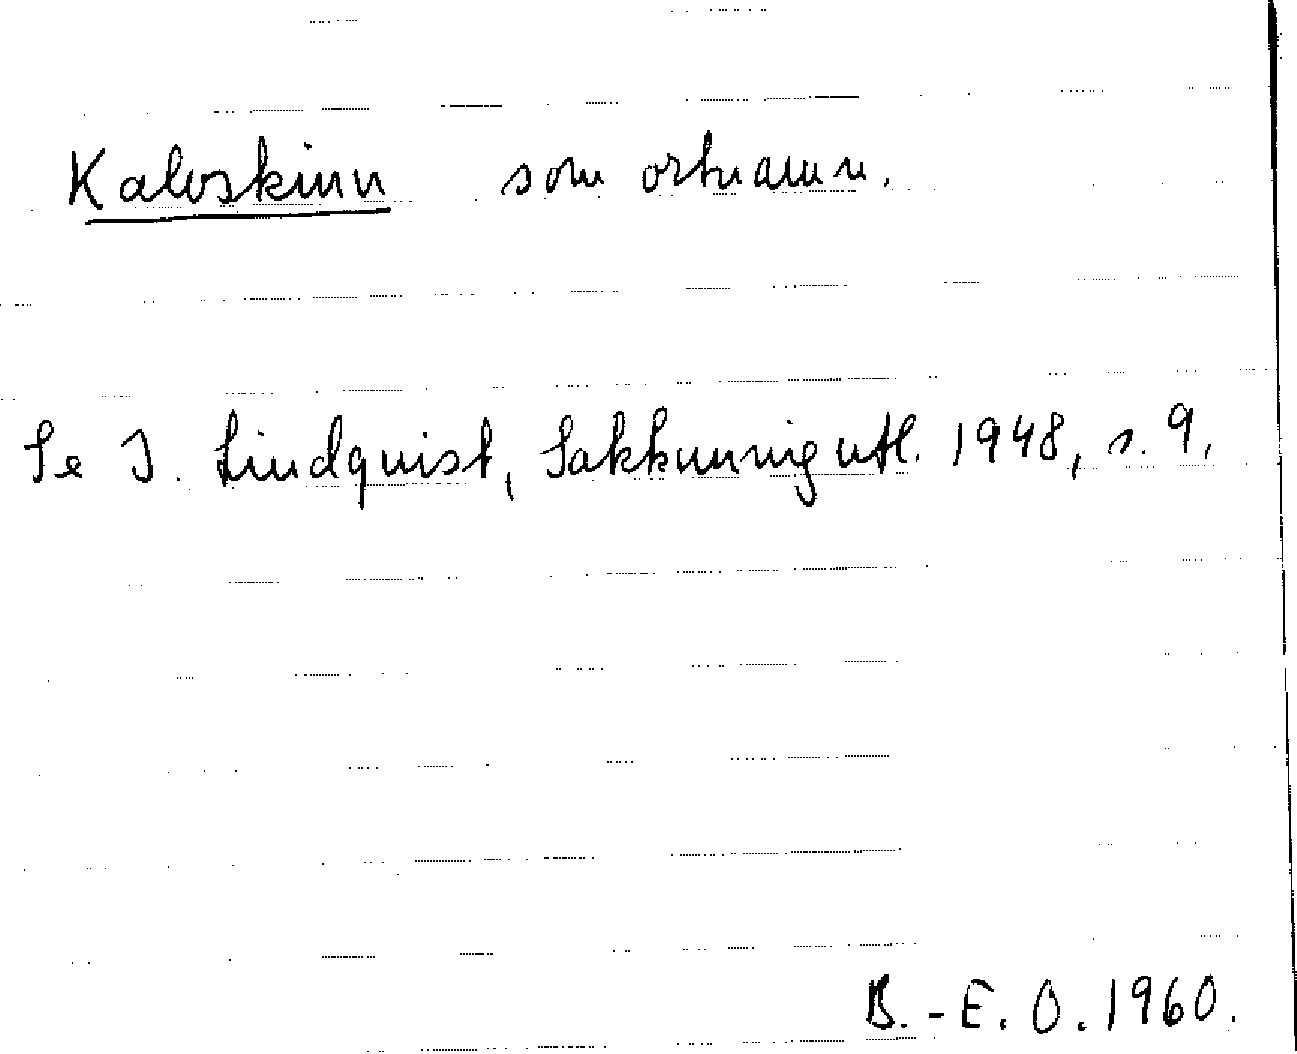 Kalvskinn som ortnamn.
Se I. Lindquist, Sakkunnigutl. 1948, s. 9.
B.-E. O. 1960.